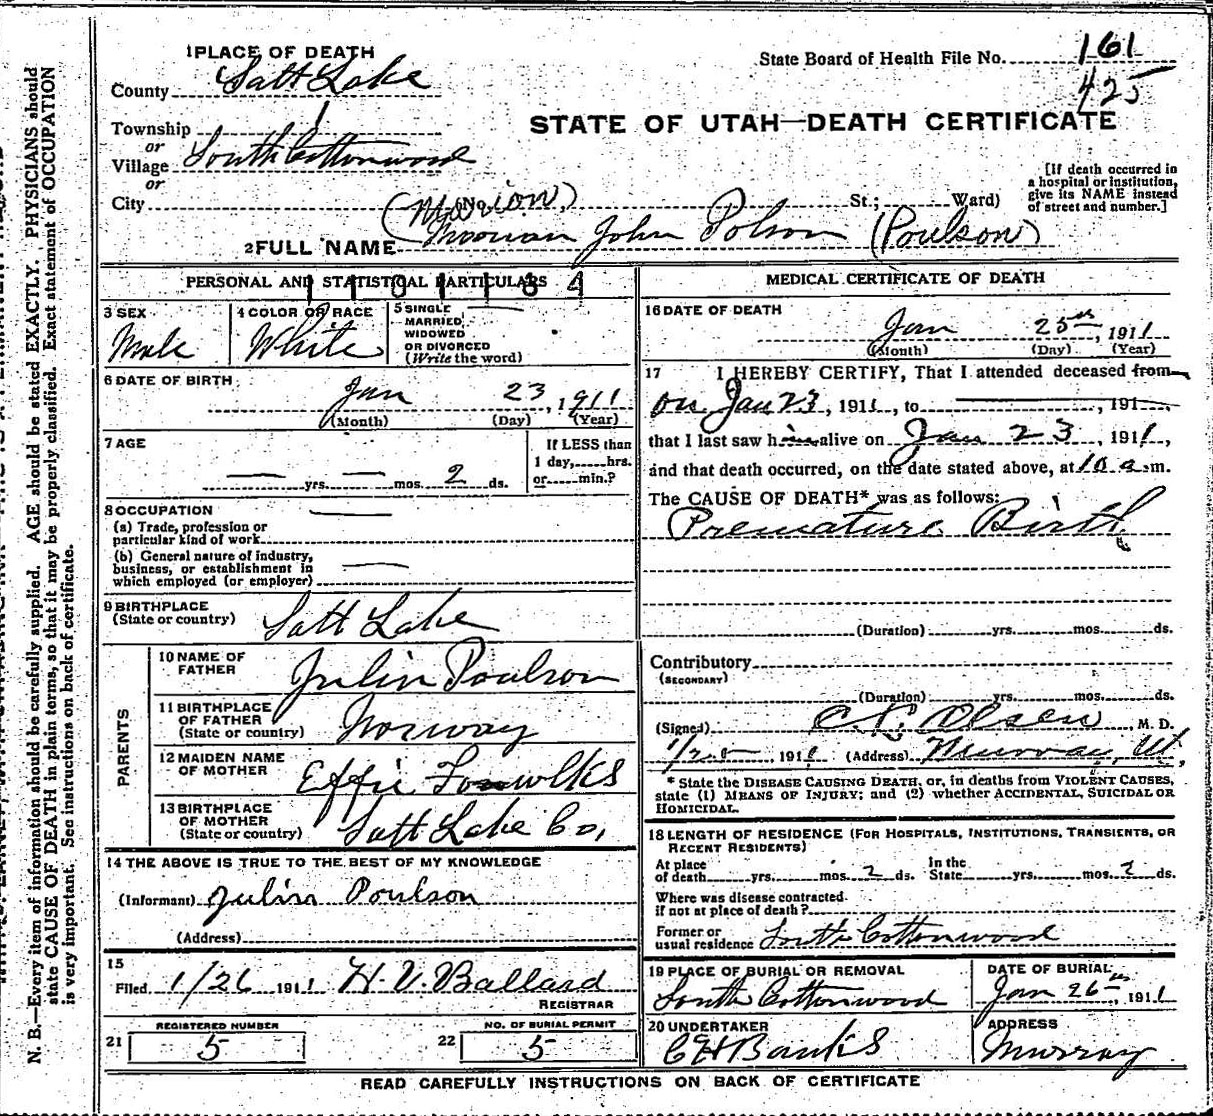 1 PLACE OF DEATH
County Salt Lake
State Board of Health File No. 161
425
STATE OF UTAH—DEATH CERTIFICATE
Township
or
Village South Cottonwood
or
City (No. St.; Ward)
[If death occurred in a hospital or institution, give its NAME instead of street and number.]
(Marion)
2 FULL NAME John Polson (Poulson)
PERSONAL AND STATISTICAL PARTICULARS
1101184
3 SEX Male
4 COLOR OR RACE White
5 SINGLE, MARRIED, WIDOWED OR DIVORCED (Write the word)
6 DATE OF BIRTH Jan 23, 1911
(Month) (Day) (Year)
7 AGE — yrs. — mos. 2 ds.
If LESS than 1 day, hrs. or min.?
8 OCCUPATION —
(a) Trade, profession or particular kind of work
(b) General nature of industry, business, or establishment in which employed (or employer) —
9 BIRTHPLACE (State or country) Salt Lake
PARENTS
10 NAME OF FATHER Poulson
11 BIRTHPLACE OF FATHER (State or country) Norway
12 MAIDEN NAME OF MOTHER Effie
13 BIRTHPLACE OF MOTHER (State or country) Salt Lake Co,
14 THE ABOVE IS TRUE TO THE BEST OF MY KNOWLEDGE
(Informant) Poulson
(Address)
15
Filed 1/26 1911 H. V. Ballard
REGISTRAR
REGISTERED NUMBER
21 5
NO. OF BURIAL PERMIT
22 5
MEDICAL CERTIFICATE OF DEATH
16 DATE OF DEATH
Jan 25th, 1911
(Month) (Day) (Year)
17 I HEREBY CERTIFY, That I attended deceased from
on Jan 23, 1911, to , 191 ,
that I last saw him alive on Jan 23, 1911,
and that death occurred, on the date stated above, at 10 a.m.
The CAUSE OF DEATH* was as follows:
Premature Birth
(Duration) yrs. mos. ds.
Contributory
(SECONDARY)
(Duration) yrs. mos. ds.
(Signed) Olsen, M. D.
1/25, 1911 (Address) Murray, Ut,
* State the DISEASE CAUSING DEATH, or, in deaths from VIOLENT CAUSES,
state (1) MEANS OF INJURY; and (2) whether ACCIDENTAL, SUICIDAL OR
HOMICIDAL.
18 LENGTH OF RESIDENCE (FOR HOSPITALS, INSTITUTIONS, TRANSIENTS, OR
RECENT RESIDENTS)
At place of death yrs. mos. 2 ds. In the State yrs. mos. 2 ds.
Where was disease contracted
if not at place of death?
Former or
usual residence South Cottonwood
19 PLACE OF BURIAL OR REMOVAL
South Cottonwood
DATE OF BURIAL
Jan 26th, 1911
20 UNDERTAKER
Banks
ADDRESS
Murray
READ CAREFULLY INSTRUCTIONS ON BACK OF CERTIFICATE
N. B.—Every item of information should be carefully supplied. AGE should be stated EXACTLY. PHYSICIANS should
state CAUSE OF DEATH in plain terms, so that it may be properly classified. Exact statement of OCCUPATION
is very important. See instructions on back of certificate.